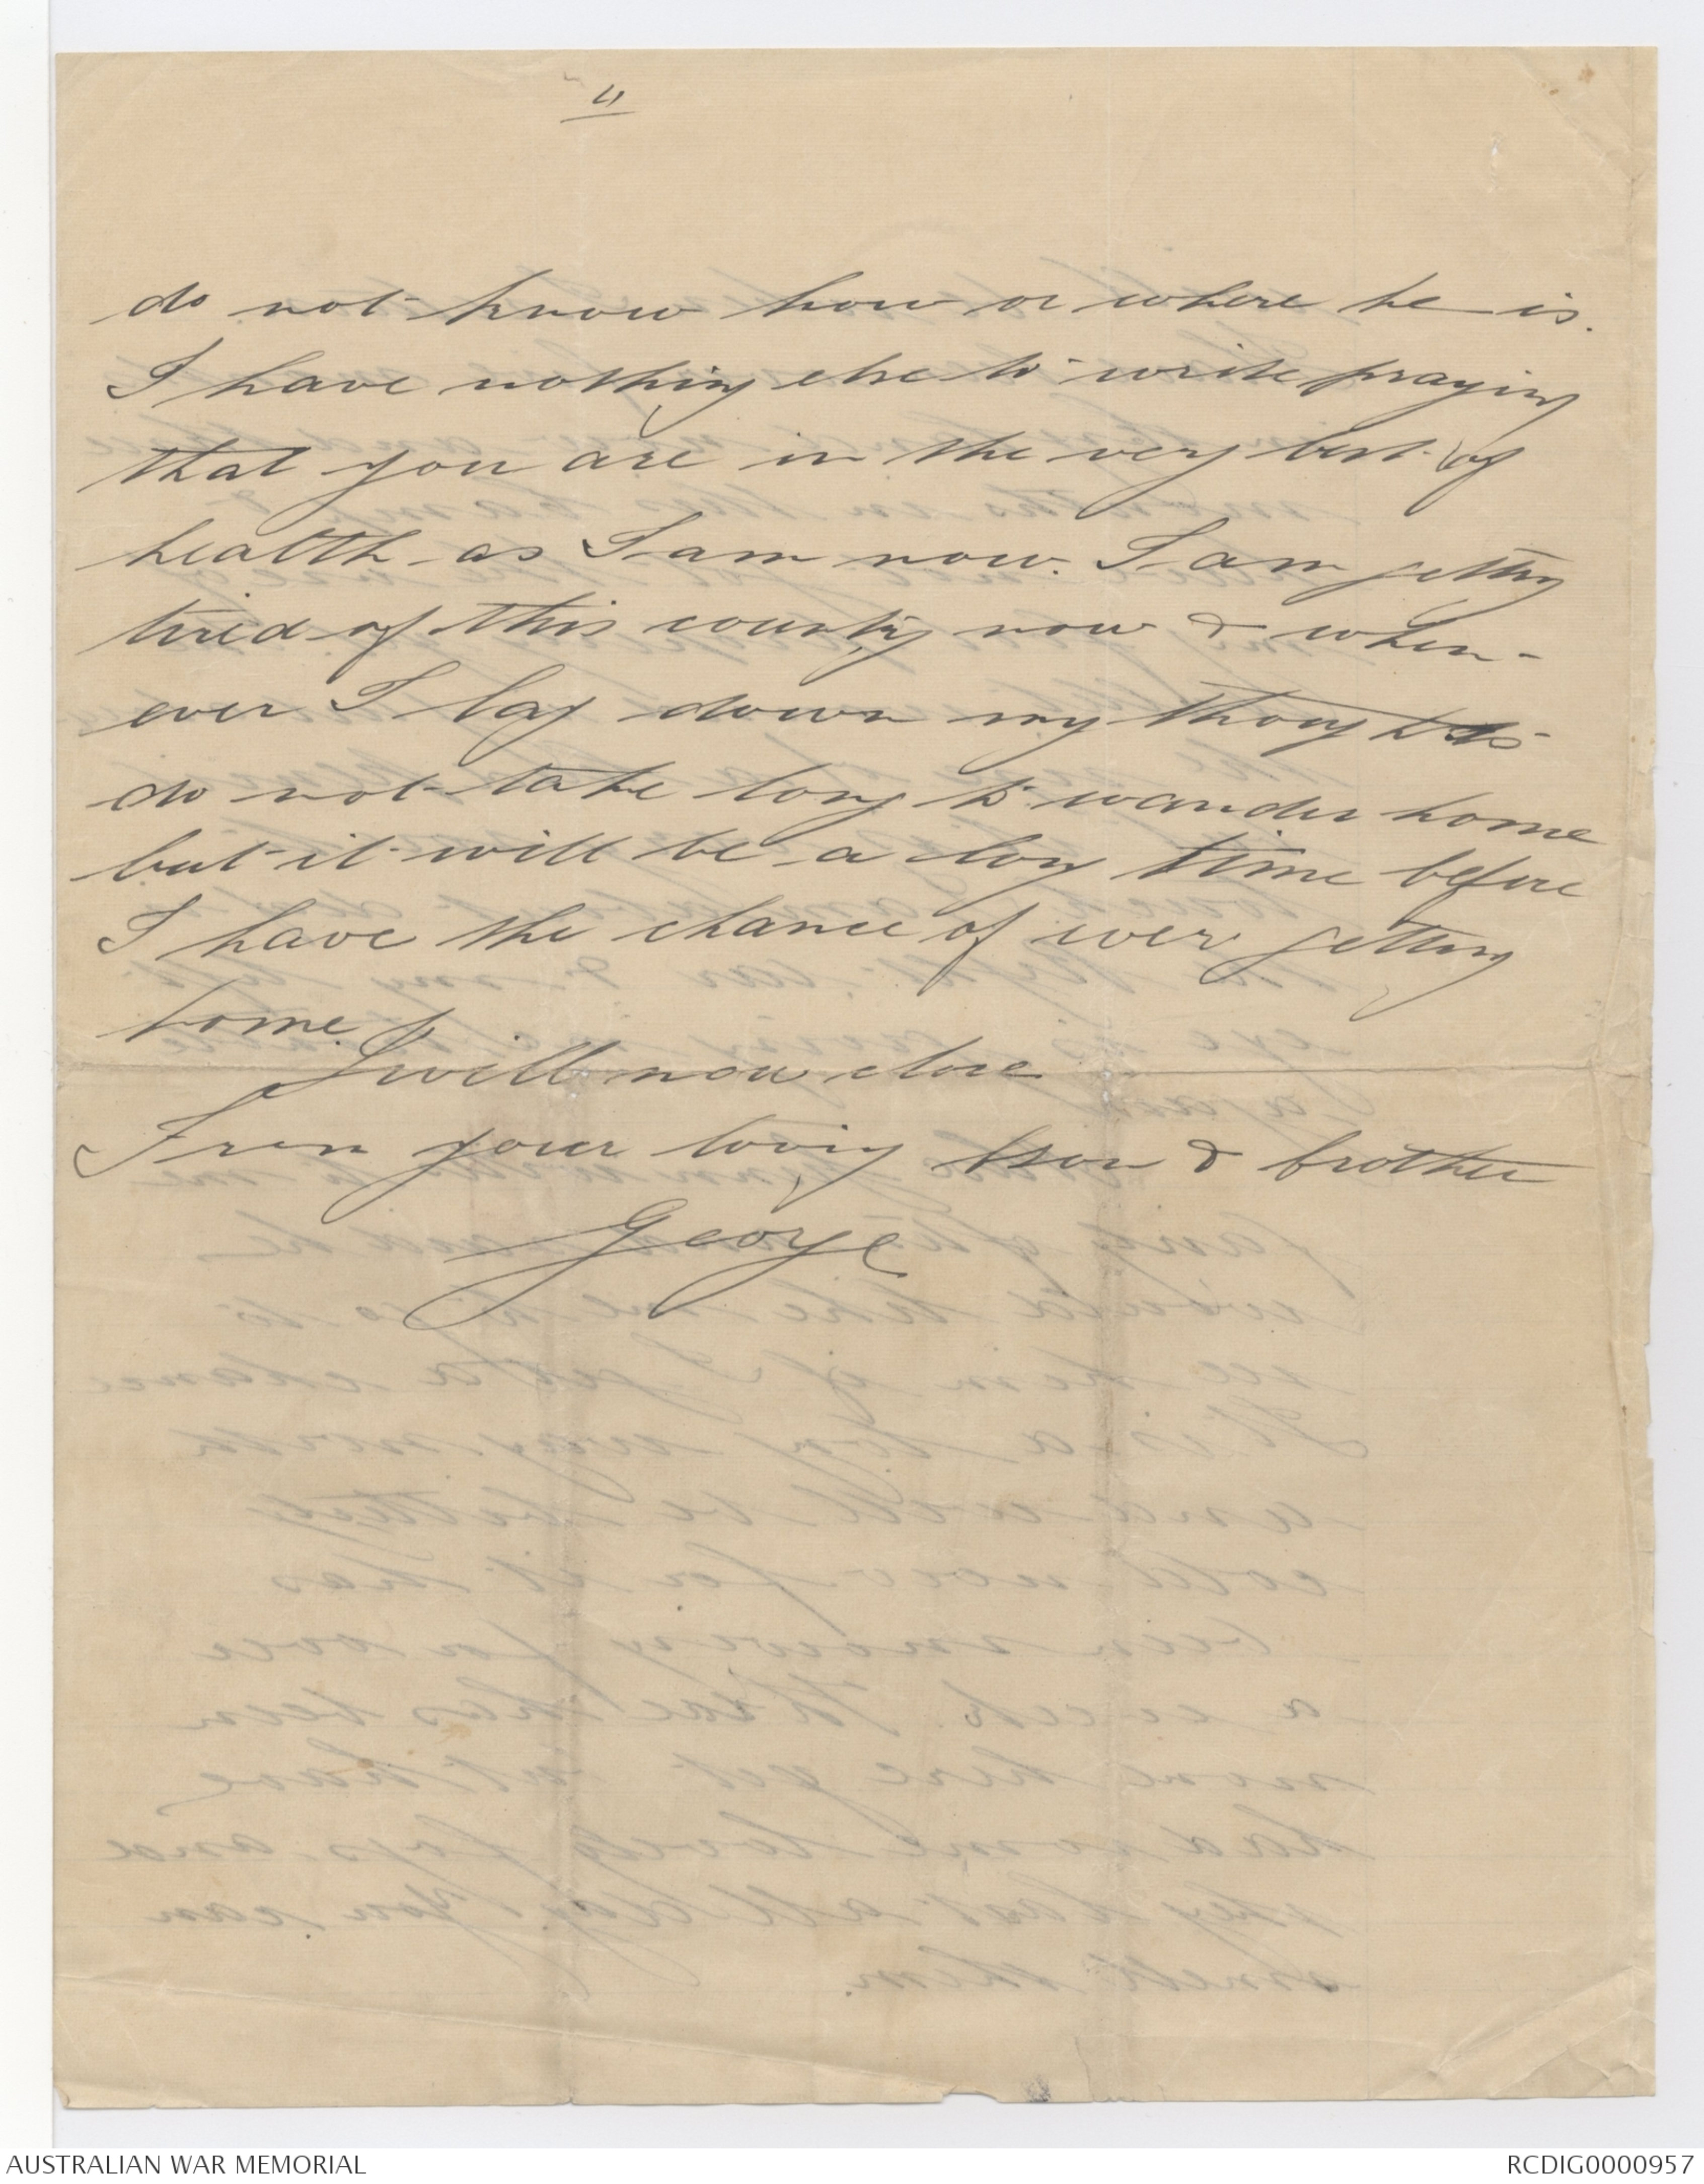 4
do not know how or where he is.
I have nothing else to write praying
that you are in the very best of
health as I am now. I am getting
tired of this country now & when-
ever I lay down my thoughts
do not take long to wander home
but it will be a long time before
I have the chance of ever getting
home.
I will now close
From your loving son & brother
George
AUSTRALIAN WAR MEMORIAL
RCDIG0000957